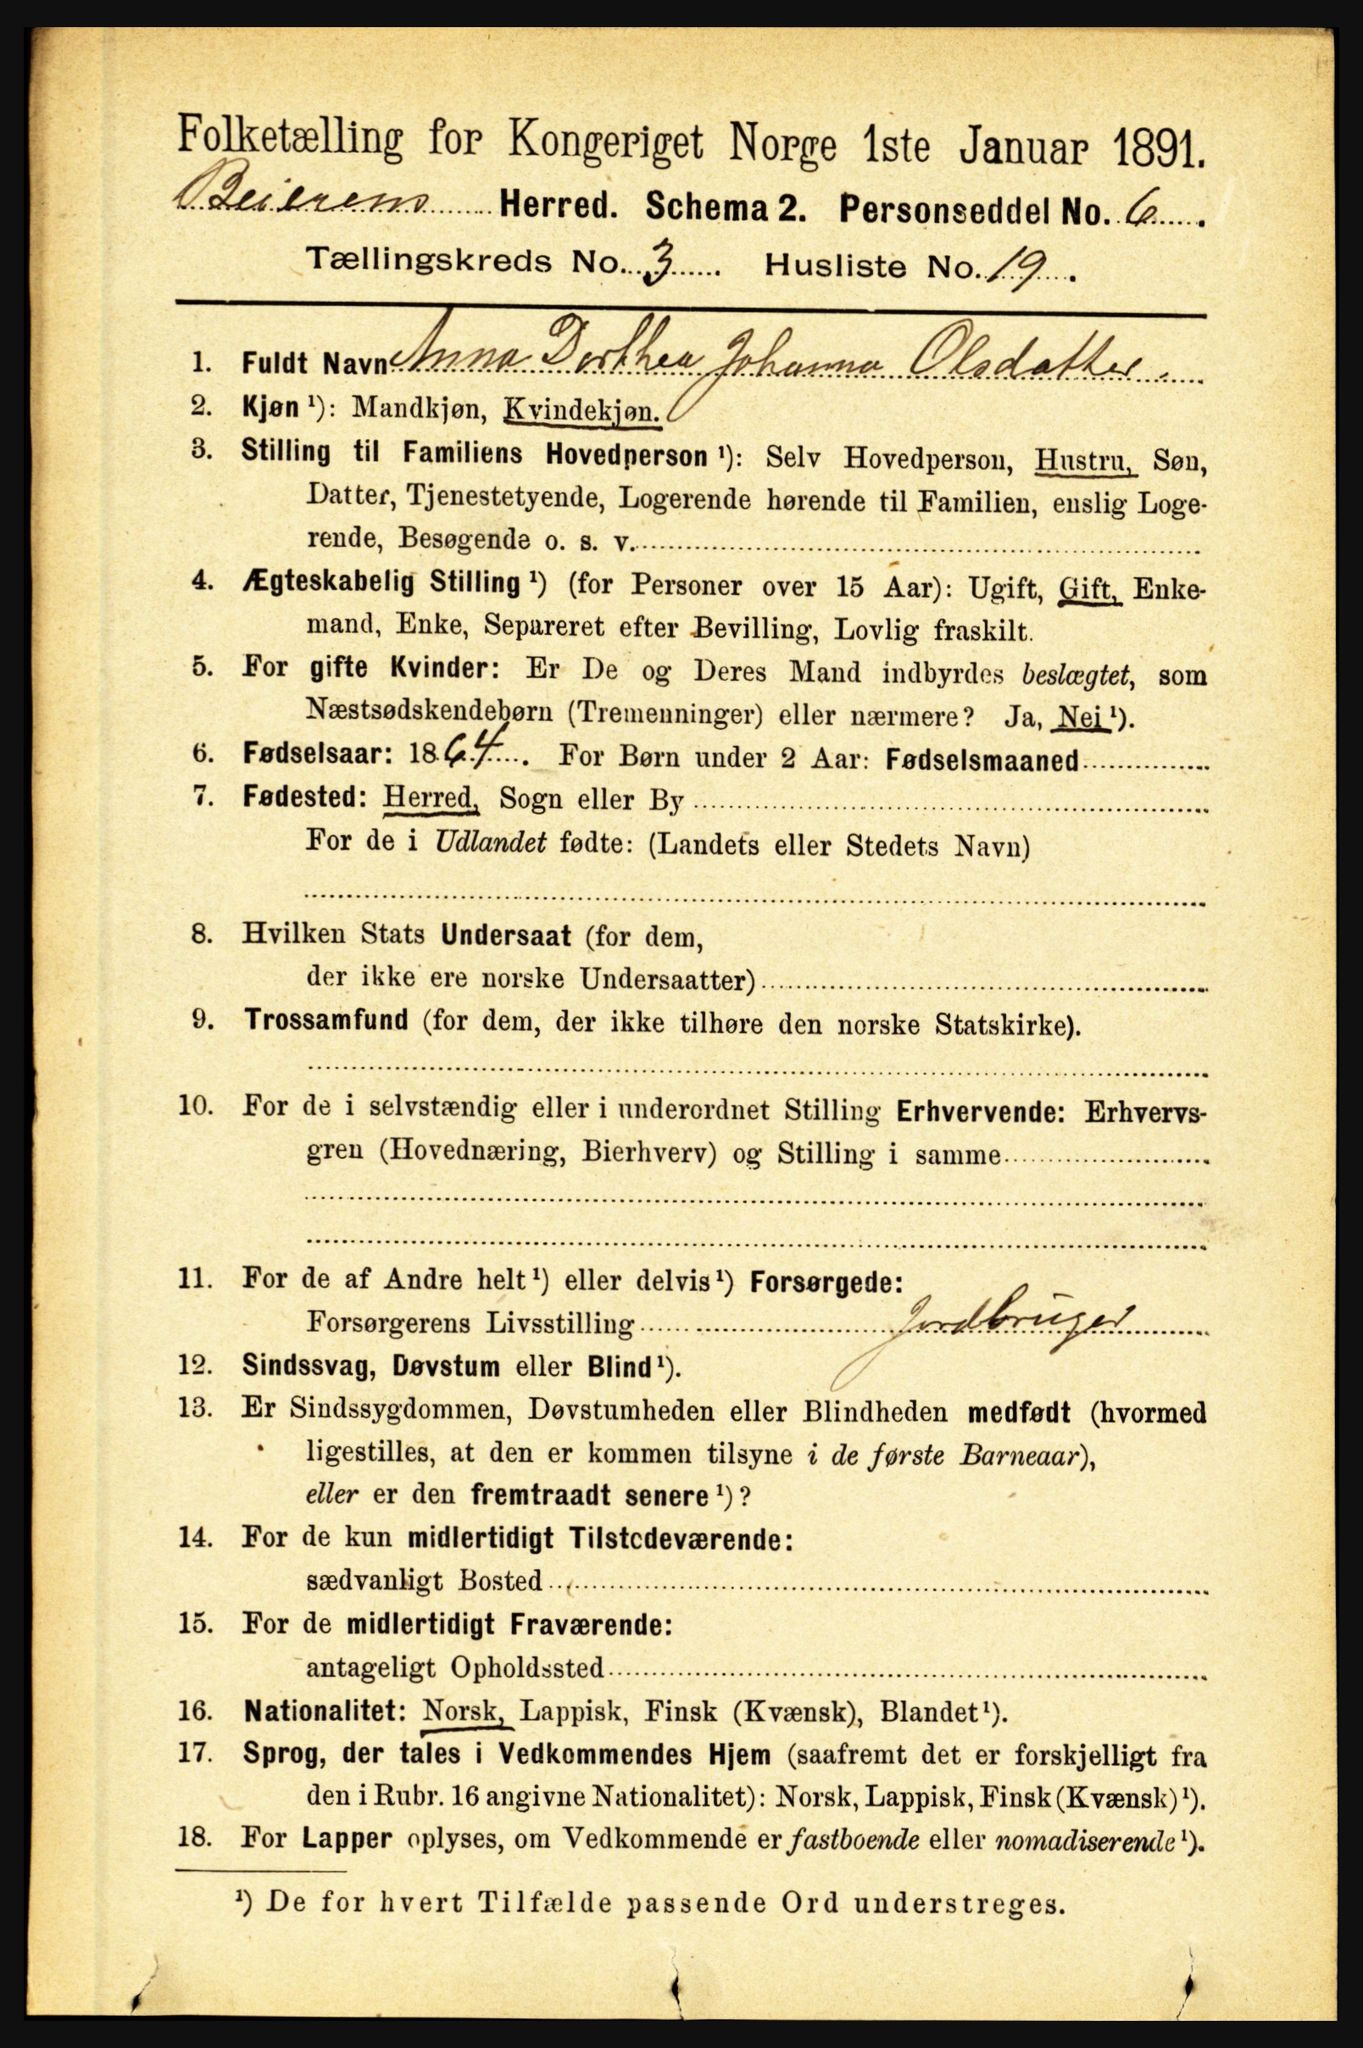 Folketælling for Kongeriget Norge 1ste Januar 1891.
Beierens Herred. Schema 2. Personseddel No. 6.
Tællingskreds No. 3. Husliste No. 19.
1. Fuldt Navn Anna Dorthea Johanna Olsdatter.
2. Kjøn ¹): Mandkjøn, Kvindekjøn.
3. Stilling til Familiens Hovedperson ¹): Selv Hovedperson, Hustru, Søn,
Datter, Tjenestetyende, Logerende hørende til Familien, enslig Loge-
rende, Besøgende o. s. v.
4. Ægteskabelig Stilling ¹) (for Personer over 15 Aar): Ugift, Gift, Enke-
mand, Enke, Separeret efter Bevilling, Lovlig fraskilt.
5. For gifte Kvinder: Er De og Deres Mand indbyrdes beslægtet, som
Næstsødskendebørn (Tremenninger) eller nærmere? Ja, Nei ¹).
6. Fødselsaar: 1864. For Børn under 2 Aar: Fødselsmaaned
7. Fødested: Herred, Sogn eller By
For de i Udlandet fødte: (Landets eller Stedets Navn)
8. Hvilken Stats Undersaat (for dem,
der ikke ere norske Undersaatter)
9. Trossamfund (for dem, der ikke tilhøre den norske Statskirke).
10. For de i selvstændig eller i underordnet Stilling Erhvervende: Erhvervs-
gren (Hovednæring, Bierhverv) og Stilling i samme
11. For de af Andre helt ¹) eller delvis ¹) Forsørgede:
Forsørgerens Livsstilling Jordbruger
12. Sindssvag, Døvstum eller Blind ¹).
13. Er Sindssygdommen, Døvstumheden eller Blindheden medfødt (hvormed
ligestilles, at den er kommen tilsyne i de første Barneaar),
eller er den fremtraadt senere ¹)?
14. For de kun midlertidigt Tilstedeværende:
sædvanligt Bosted
15. For de midlertidigt Fraværende:
antageligt Opholdssted
16. Nationalitet: Norsk, Lappisk, Finsk (Kvænsk), Blandet ¹).
17. Sprog, der tales i Vedkommendes Hjem (saafremt det er forskjelligt fra
den i Rubr. 16 angivne Nationalitet): Norsk, Lappisk, Finsk (Kvænsk) ¹).
18. For Lapper oplyses, om Vedkommende er fastboende eller nomadiserende ¹).
¹) De for hvert Tilfælde passende Ord understreges.